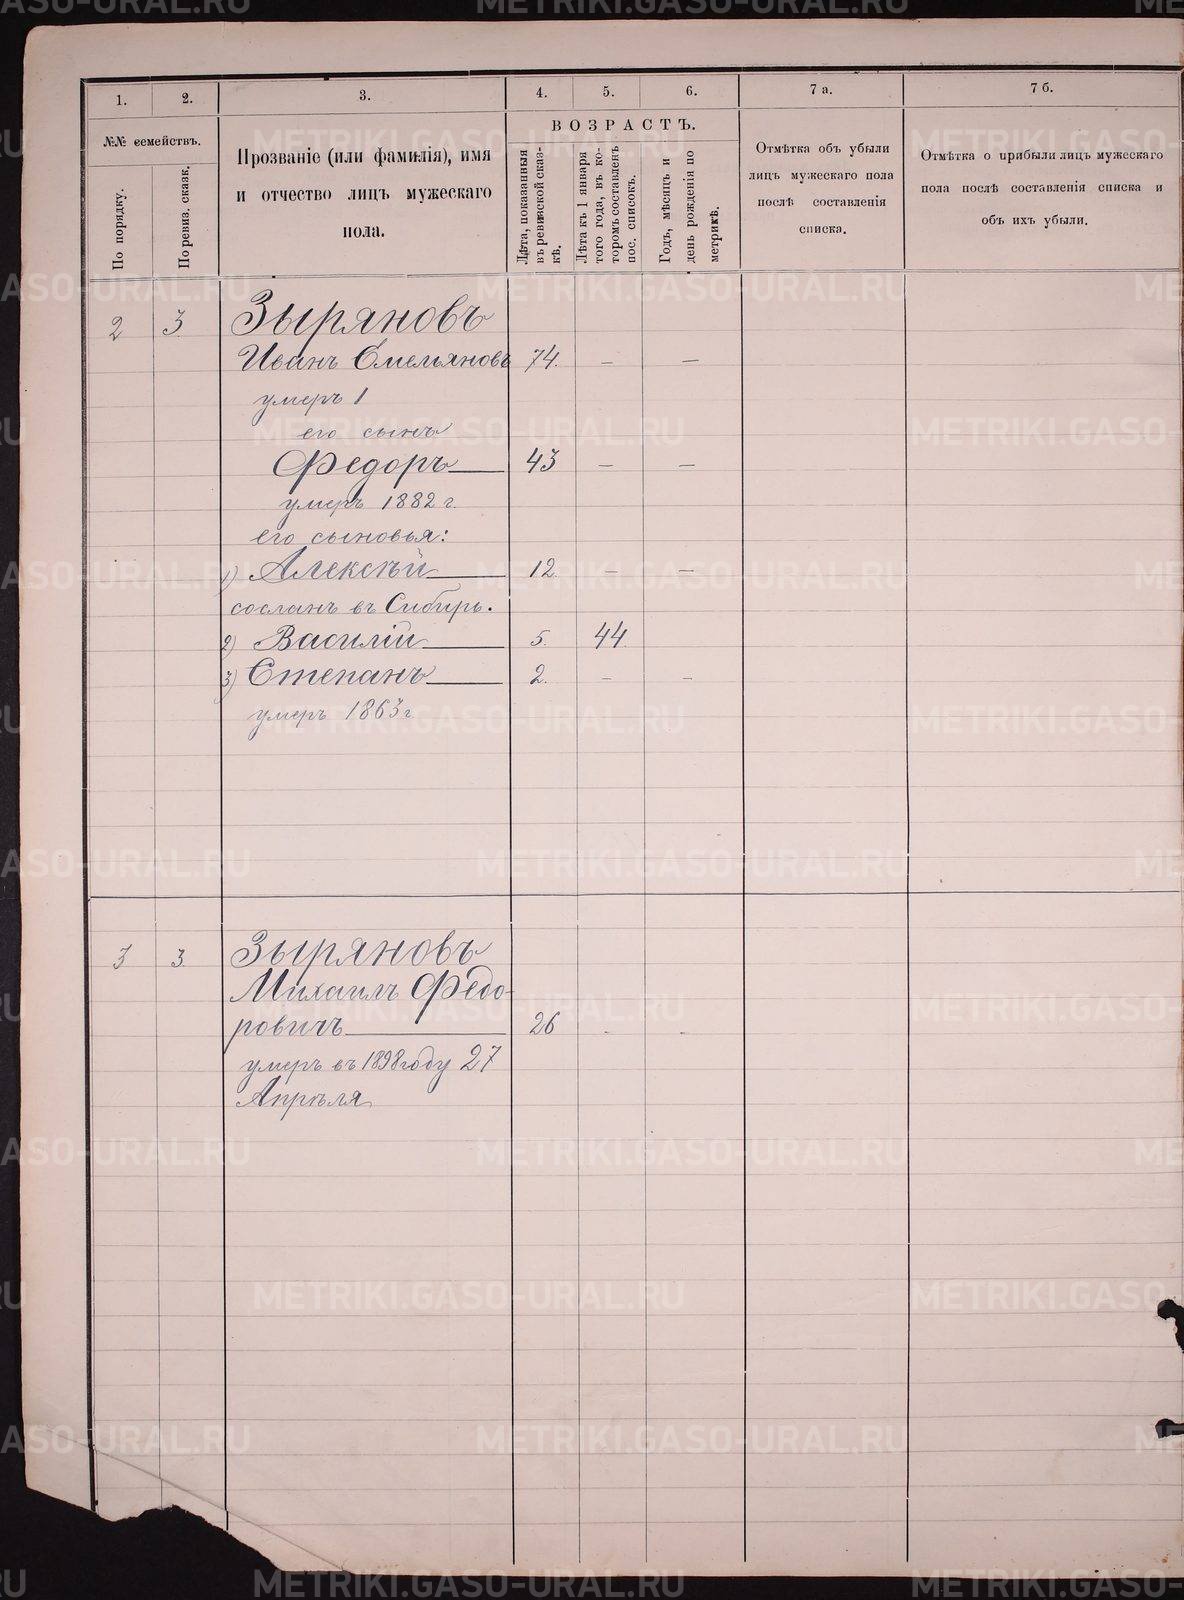 1.
2.
3.
4.
5.
6.
7 а.
7 б.
№№ семействъ.
По порядку.
По ревиз. сказк.
Прозваніе (или фамилія), имя
и отчество лицъ мужескаго
пола.
ВОЗРАСТЪ.
Лѣта, показанныя
въ ревизской сказ-
кѣ.
Лѣта къ 1 января
того года, въ ко-
торомъ составленъ
пос. списокъ.
Годъ, мѣсяцъ и
день рожденія по
метрикѣ.
Отмѣтка объ убыли
лицъ мужескаго пола
послѣ составленія
списка.
Отмѣтка о прибыли лицъ мужескаго
пола послѣ составленія списка и
объ ихъ убыли.
2 3. Зыряновъ
Иванъ Емельяновъ 74. — —
умеръ 1
его сынъ
Федоръ 43 — —
умеръ 1882 г.
его сыновья:
1) Алексѣй 12. — —
сосланъ въ Сибирь.
2) Василій 5. 44.
3) Степанъ 2. — —
умеръ 1863 г.
3 3. Зыряновъ
Михаилъ Федо-
ровичъ 26 - -
умеръ въ 1898 году 27
Апрѣля
METRIKI.GASO-URAL.RU